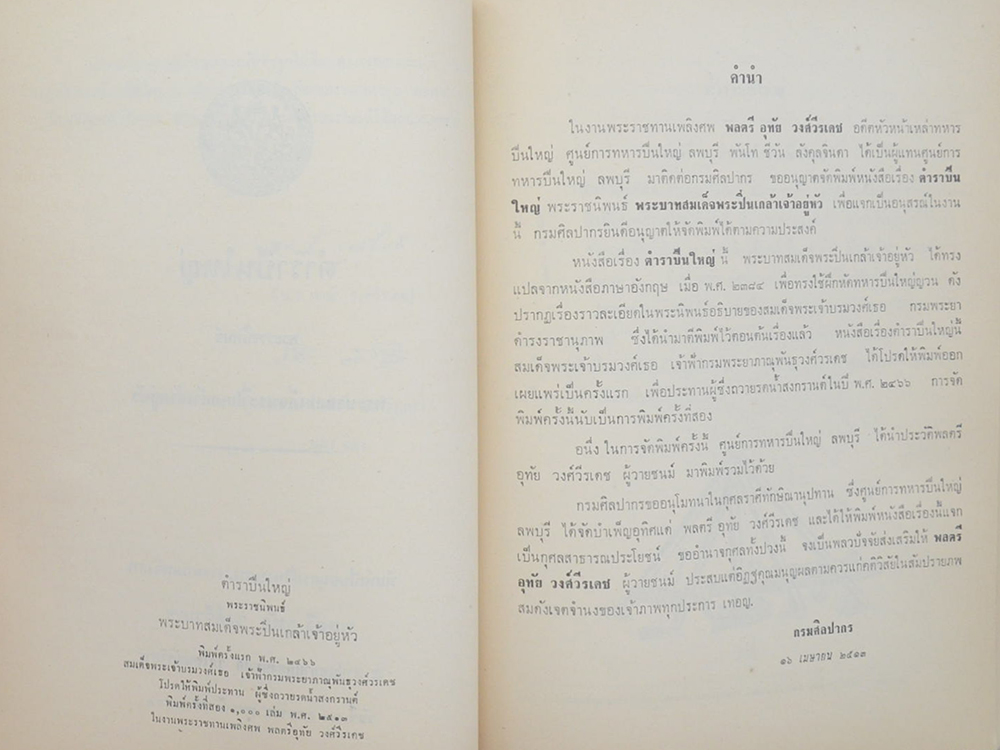 ตำราปืนใหญ่
พระราชนิพนธ์
พระบาทสมเด็จพระปิ่นเกล้าเจ้าอยู่หัว
พิมพ์ครั้งแรก พ.ศ. ๒๔๖๖
สมเด็จพระเจ้าบรมวงศ์เธอ เจ้าฟ้ากรมพระยาภาณุพันธุวงศ์วรเดช
โปรดให้พิมพ์ประทาน ผู้ซึ่งถวายรดน้ำสงกรานต์
พิมพ์ครั้งที่สอง ๑,๐๐๐ เล่ม พ.ศ. ๒๕๑๓
ในงานพระราชทานเพลิงศพ พลตรีอุทัย วงศ์วีรเดช
คำนำ
ในงานพระราชทานเพลิงศพ พลตรี อุทัย วงศ์วีรเดช อดีตหัวหน้าเหล่าทหาร
ปืนใหญ่ ศูนย์การทหารปืนใหญ่ ลพบุรี พันโท ชีวัน ลังคุลจินดา ได้เป็นผู้แทนศูนย์การ
ทหารปืนใหญ่ ลพบุรี มาติดต่อกรมศิลปากร ขออนุญาตจัดพิมพ์หนังสือเรื่อง ตำราปืน
ใหญ่ พระราชนิพนธ์ พระบาทสมเด็จพระปิ่นเกล้าเจ้าอยู่หัว เพื่อแจกเป็นอนุสรณ์ในงาน
นี้ กรมศิลปากรยินดีอนุญาตให้จัดพิมพ์ได้ตามความประสงค์
หนังสือเรื่อง ตำราปืนใหญ่ นี้ พระบาทสมเด็จพระปิ่นเกล้าเจ้าอยู่หัว ได้ทรง
แปลจากหนังสือภาษาอังกฤษ เมื่อ พ.ศ. ๒๓๘๔ เพื่อทรงใช้ฝึกหัดทหารปืนใหญ่ญวน ดัง
ปรากฏเรื่องราวละเอียดในพระนิพนธ์อธิบายของสมเด็จพระเจ้าบรมวงศ์เธอ กรมพระยา
ดำรงราชานุภาพ ซึ่งได้นำมาตีพิมพ์ไว้ตอนต้นเรื่องแล้ว หนังสือเรื่องตำราปืนใหญ่นี้
สมเด็จพระเจ้าบรมวงศ์เธอ เจ้าฟ้ากรมพระยาภาณุพันธุวงศ์วรเดช ได้โปรดให้พิมพ์ออก
เผยแพร่เป็นครั้งแรก เพื่อประทานผู้ซึ่งถวายรดน้ำสงกรานต์ในปี พ.ศ. ๒๔๖๖ การจัด
พิมพ์ครั้งนี้นับเป็นการพิมพ์ครั้งที่สอง
อนึ่ง ในการจัดพิมพ์ครั้งนี้ ศูนย์การทหารปืนใหญ่ ลพบุรี ได้นำประวัติพลตรี
อุทัย วงศ์วีรเดช ผู้วายชนม์ มาพิมพ์รวมไว้ด้วย
กรมศิลปากรขออนุโมทนาในกุศลราศีทักษิณานุปทาน ซึ่งศูนย์การทหารปืนใหญ่
ลพบุรี ได้จัดบำเพ็ญอุทิศแด่ พลตรี อุทัย วงศ์วีรเดช และได้ให้พิมพ์หนังสือเรื่องนี้แจก
เป็นกุศลสาธารณประโยชน์ ขออำนาจกุศลทั้งปวงนี้ จงเป็นพลวปัจจัยส่งเสริมให้ พลตรี
อุทัย วงศ์วีรเดช ผู้วายชนม์ ประสบแต่อิฏฐคุณมนุญผลตามควรแก่คติวิสัยในสัมปรายภพ
สมดังเจตจำนงของเจ้าภาพทุกประการ เทอญ.
กรมศิลปากร
๑๖ เมษายน ๒๕๑๓